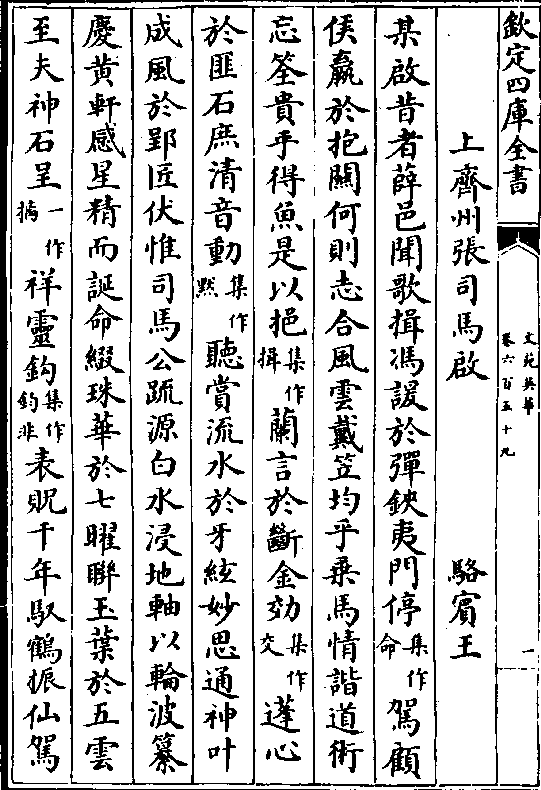 欽定四庫全書
文苑英華
卷六百五十九
一
上齊州張司馬啟 駱賓王
某啟昔者薛邑聞歌揖馮諼於彈鋏夷門停集作命駕顧
侯嬴於抱關何則志合風雲戴笠均乎乗馬情諧道術
忘筌貴乎得魚是以挹集作揖蘭言於斷金効集作交蓬心
於匪石庶清音動集作黙聽賞流水於牙絃妙思通神叶
成風於郢匠伏惟司馬公䟽源白水浸地軸以輪波纂
慶黄軒感星精而誕命綴珠華於七曜聨玉葉於五雲
至夫神石呈一作摛祥靈鈎集作鈞非表貺千年馭鶴振仙駕